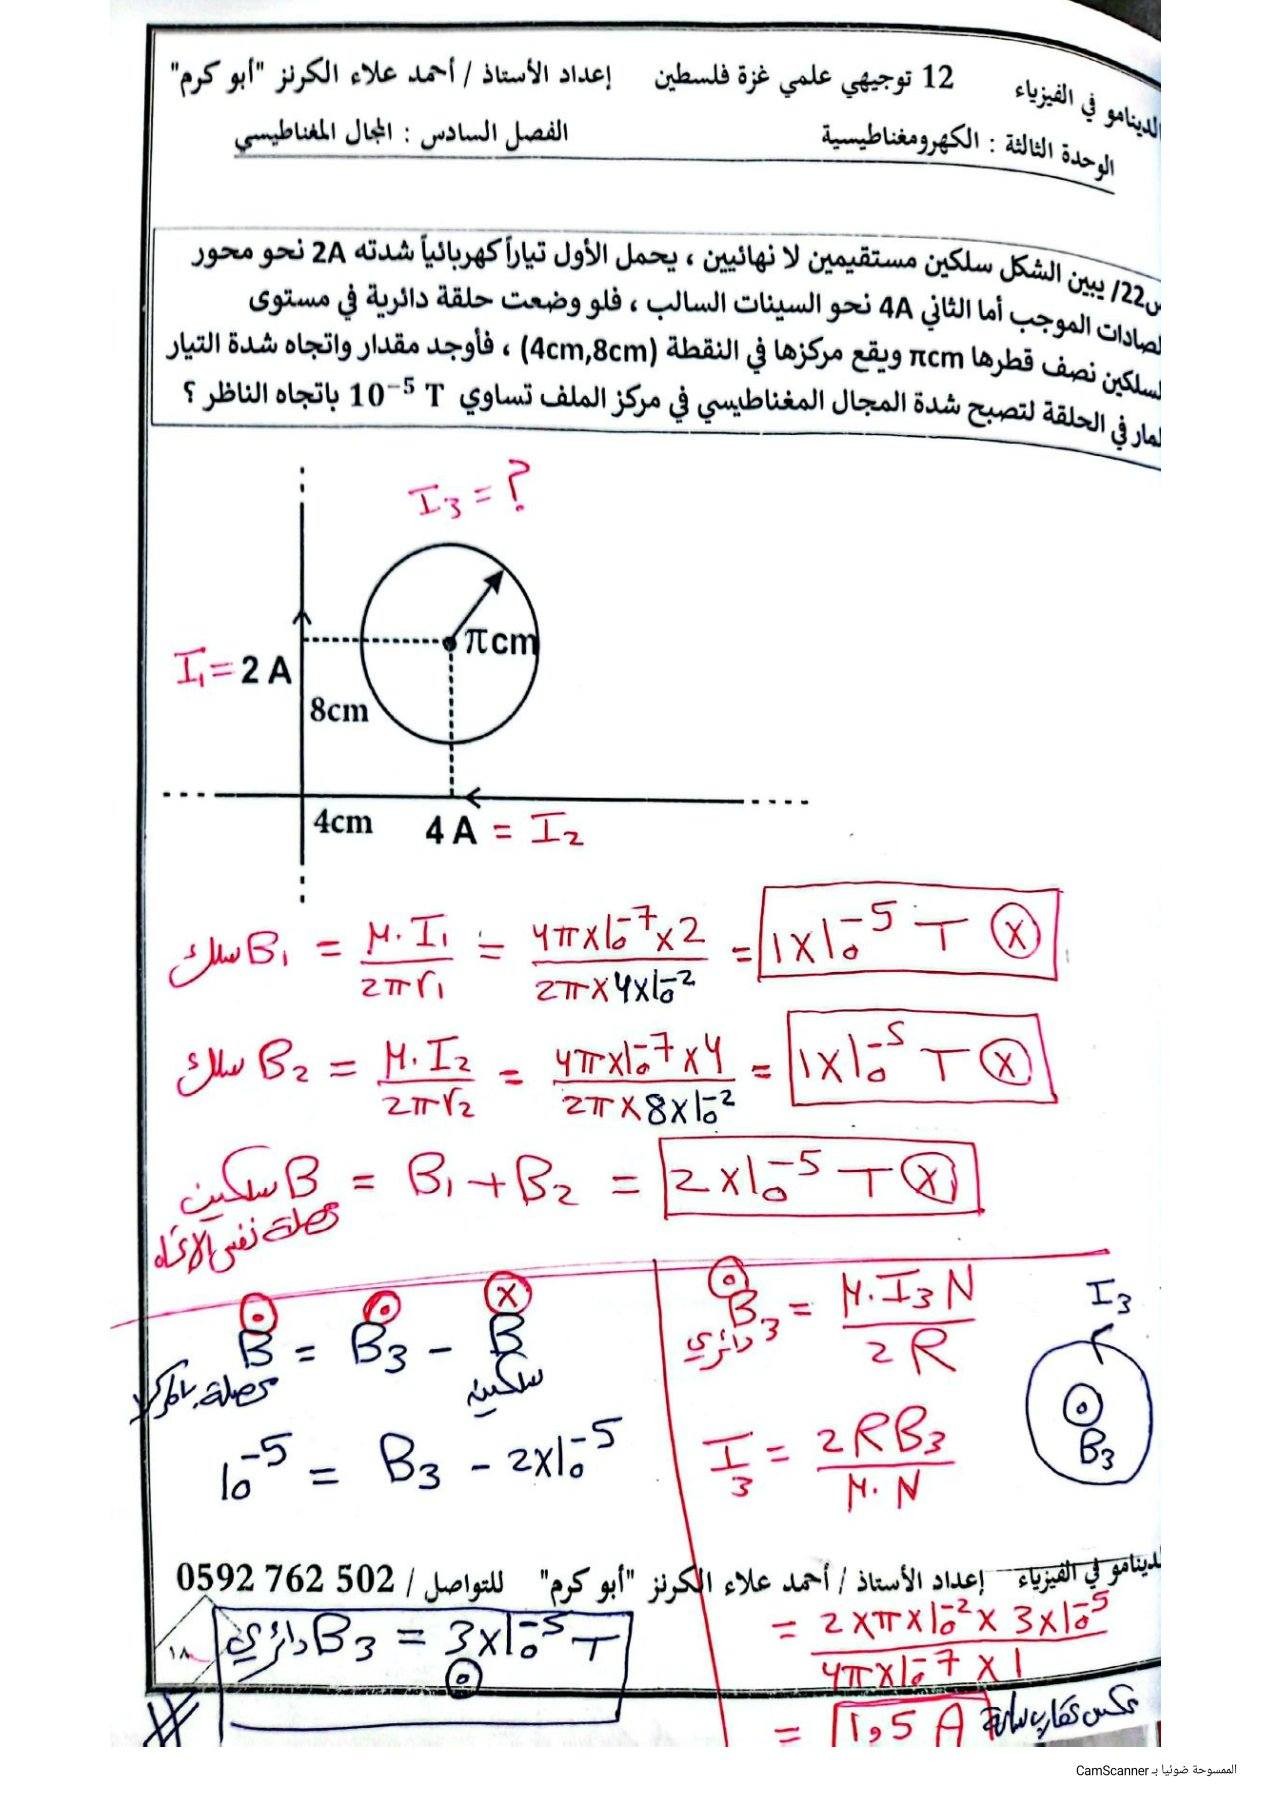 الدينامو في الفيزياء 12 توجيهي علمي غزة فلسطين إعداد الأستاذ / أحمد علاء الكرنز "أبو كرم"
الوحدة الثالثة : الكهرومغناطيسية الفصل السادس : المجال المغناطيسي
س22/ يبين الشكل سلكين مستقيمين لا نهائيين ، يحمل الأول تياراً كهربائياً شدته 2A نحو محور
لصادات الموجب أما الثاني 4A نحو السينات السالب ، فلو وضعت حلقة دائرية في مستوى
لسلكين نصف قطرها πcm ويقع مركزها في النقطة (4cm,8cm) ، فأوجد مقدار واتجاه شدة التيار
لمار في الحلقة لتصبح شدة المجال المغناطيسي في مركز الملف تساوي 10⁻⁵ T باتجاه الناظر ؟
I₃ = ?
πcm
I₁ = 2 A
8cm
4cm 4 A = I₂
سلك B₁ = μ. I₁ / 2πr₁ = 4π×10⁻⁷×2 / 2π×4×10⁻² = 1×10⁻⁵ T ⊗
سلك B₂ = μ. I₂ / 2πr₂ = 4π×10⁻⁷×4 / 2π×8×10⁻² = 1×10⁻⁵ T ⊗
سلكين B = B₁ + B₂ = 2×10⁻⁵ T ⊗
محصلة نفس الاتجاه
⊙ B = ⊙ B₃ − ⊗ B
سلكين
10⁻⁵ = B₃ − 2×10⁻⁵
⊙ B₃ دائري = μ. I₃ N / 2R
I₃
⊙
B₃
I₃ = 2RB₃ / μ. N
لدينامو في الفيزياء إعداد الأستاذ / أحمد علاء الكرنز "أبو كرم" للتواصل / 0592 762 502
= 2×π×10⁻²×3×10⁻⁵ / 4π×10⁻⁷×1
دائري B₃ = 3×10⁻⁵ T
⊙
١٨
= 1,5 A عكس عقارب ساعة
الممسوحة ضوئيا بـ CamScanner